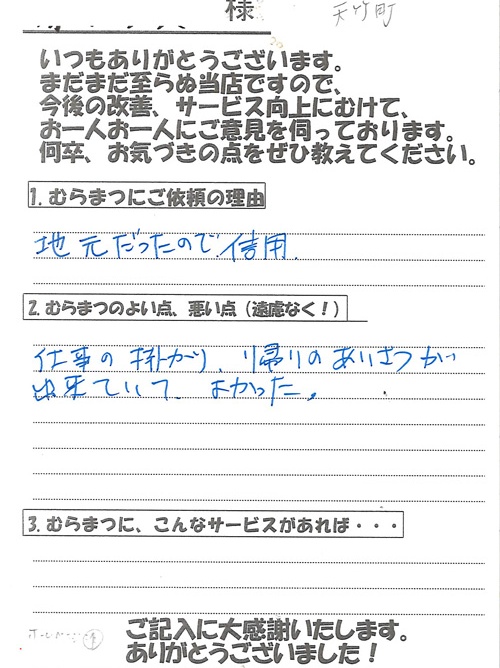 様
天竹町
いつもありがとうございます。
まだまだ至らぬ当店ですので、
今後の改善、サービス向上にむけて、
お一人お一人にご意見を伺っております。
何卒、お気づきの点をぜひ教えてください。
1. むらまつにご依頼の理由
地元だったので、信用
2. むらまつのよい点、悪い点（遠慮なく！）
仕事の掛かり、帰りのあいさつが
出来ていて、よかった。
3. むらまつに、こんなサービスがあれば・・・
ご記入に大感謝いたします。
ありがとうございました！